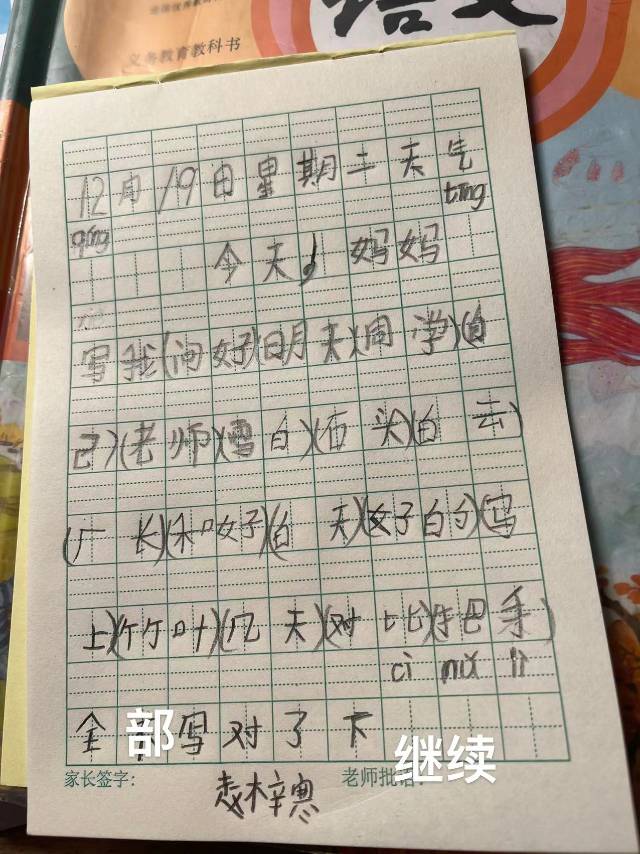 义务教育教科书
语文
12月19日星期二天气
tīng
qíng
今天,妈妈
写我(问好)(明天)(同学)(自
己)(老师)(雪白)(石头)(白云)
(厂长)(和好)(白天)(女子自勺)(写
上)(竹叶)(几天)(对比)(手巴手)
cì nǚ
全部写对了下
继续
家长签字:
老师批语:
梓寒